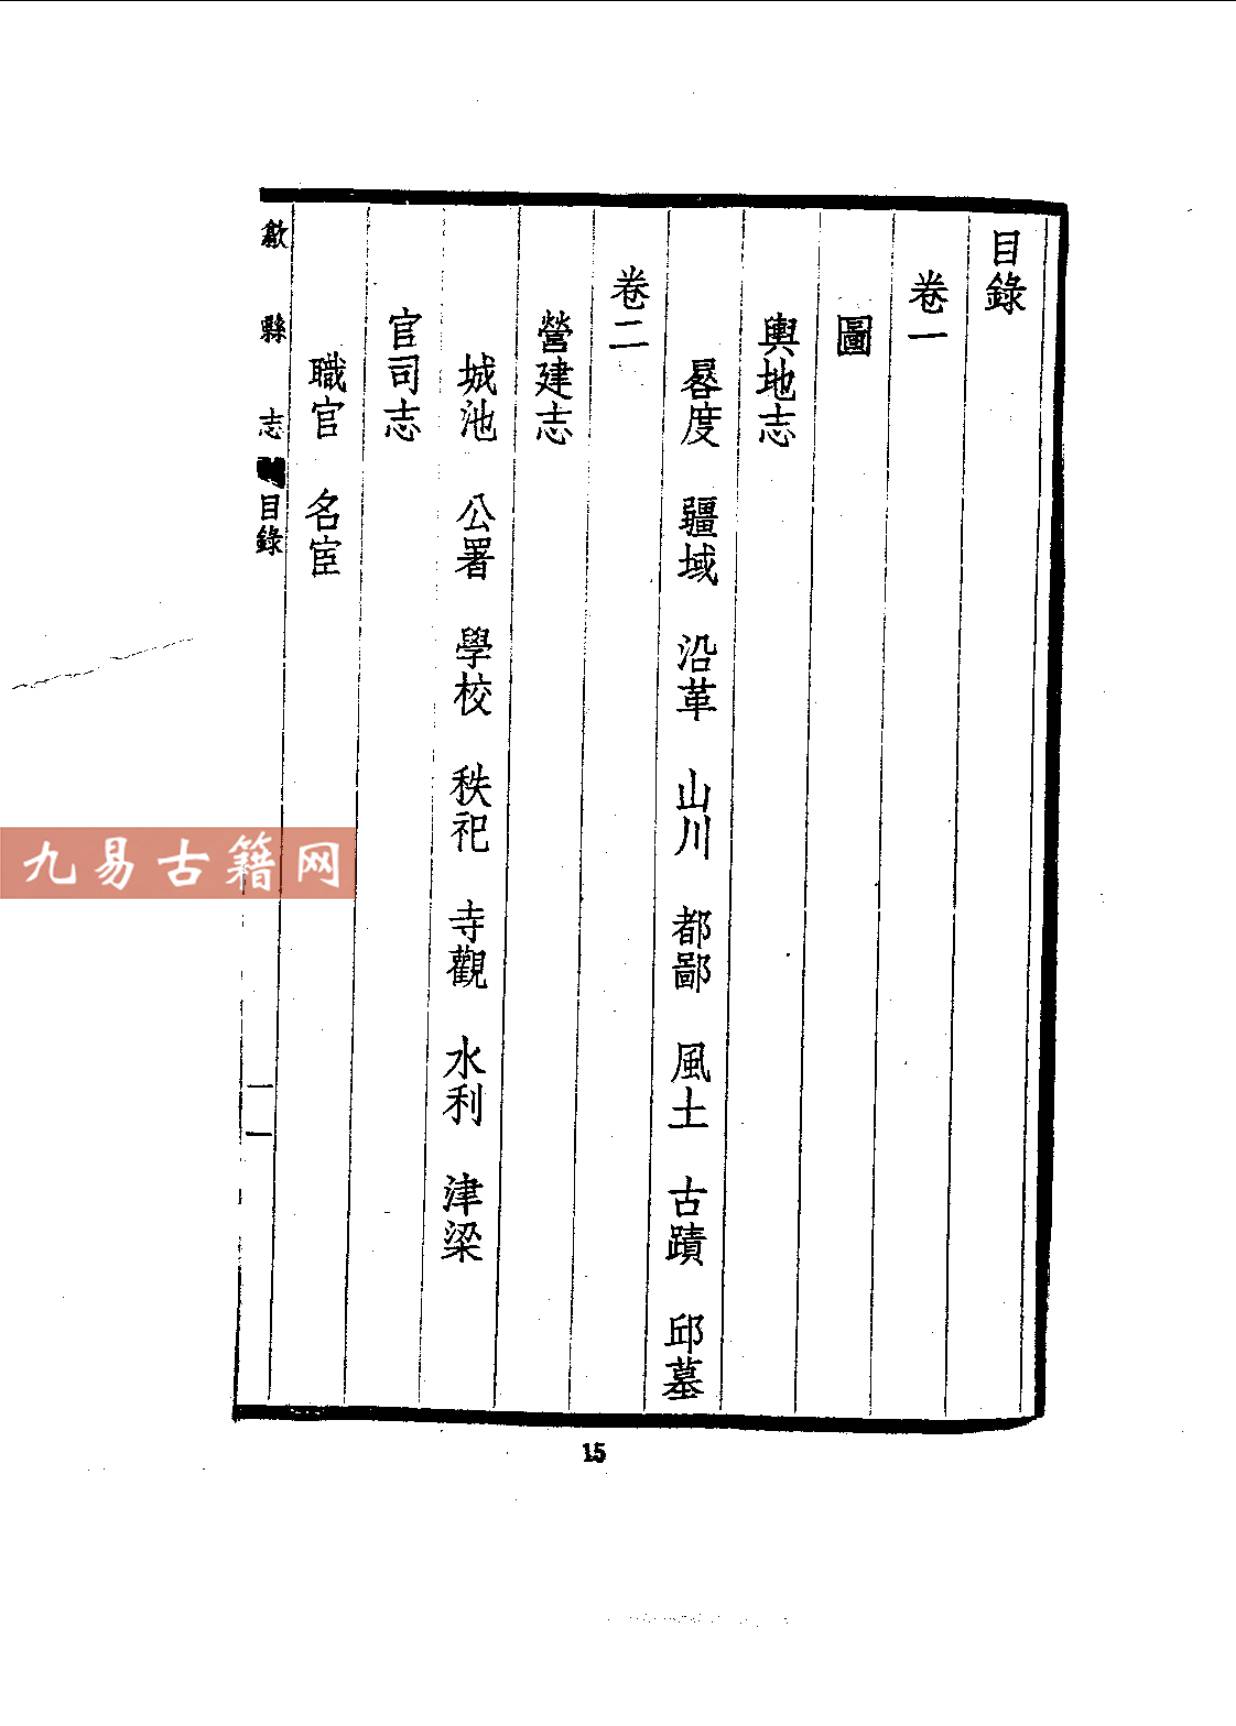 目錄
卷一
圖
輿地志
晷度 疆域 沿革 山川 都鄙 風土 古蹟 邱墓
卷二
營建志
城池 公署 學校 秩祀 寺觀 水利 津梁
官司志
職官 名宦
歙縣志 目錄 一一
15
九易古籍网